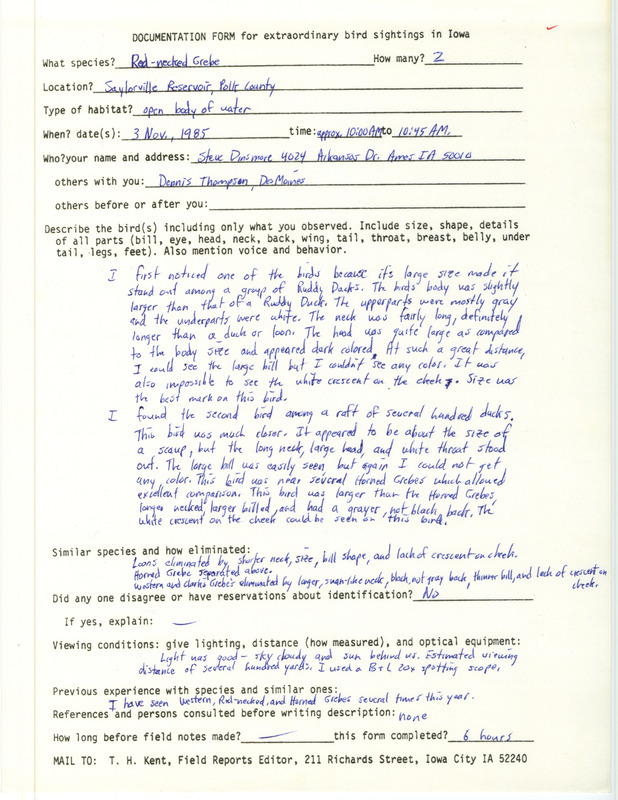 DOCUMENTATION FORM for extraordinary bird sightings in Iowa
What species? Red-necked Grebe How many? 2
Location? Saylorville Reservoir, Polk County
Type of habitat? open body of water
When? date(s): 3 Nov., 1985 time: approx. 10:00AM to 10:45 AM.
Who? your name and address: Steve Dinsmore 4024 Arkansas Dr. Ames IA 50010
others with you: Dennis Thompson, Des Moines
others before or after you:
Describe the bird(s) including only what you observed. Include size, shape, details
of all parts (bill, eye, head, neck, back, wing, tail, throat, breast, belly, under
tail, legs, feet). Also mention voice and behavior.
I first noticed one of the birds because it's large size made it
stand out among a group of Ruddy Ducks. The birds body was slightly
larger than that of a Ruddy Duck. The upperparts were mostly gray
and the underparts were white. The neck was fairly long, definitely
longer than a duck or loon. The head was quite large as compared
to the body size and appeared dark colored. At such a great distance,
I could see the large bill but I couldn't see any color. It was
also impossible to see the white crescent on the cheek. Size was
the best mark on this bird.
I found the second bird among a raft of several hundred ducks.
This bird was much closer. It appeared to be about the size of
a scaup, but the long neck, large head, and white throat stood
out. The large bill was easily seen, but again I could not get
any color. This bird was near several Horned Grebes which allowed
excellent comparison. This bird was larger than the Horned Grebes,
longer necked, larger billed, and had a grayer, not black, back. The
white crescent on the cheek could be seen on this bird.
Similar species and how eliminated:
Loons eliminated by shorter neck, size, bill shape, and lack of crescent on cheek.
Horned Grebe separated above.
Western and Clark's Grebes eliminated by larger, swan-like neck, black, not gray back, thinner bill, and lack of crescent on
cheek.
Did any one disagree or have reservations about identification? No
If yes, explain: —
Viewing conditions: give lighting, distance (how measured), and optical equipment:
Light was good - sky cloudy and sun behind us. Estimated viewing
distance of several hundred yards. I used a B+L 20x spotting scope.
Previous experience with species and similar ones:
I have seen Western, Red-necked, and Horned Grebes several times this year.
References and persons consulted before writing description: none
How long before field notes made? — this form completed? 6 hours
MAIL TO: T. H. Kent, Field Reports Editor, 211 Richards Street, Iowa City IA 52240